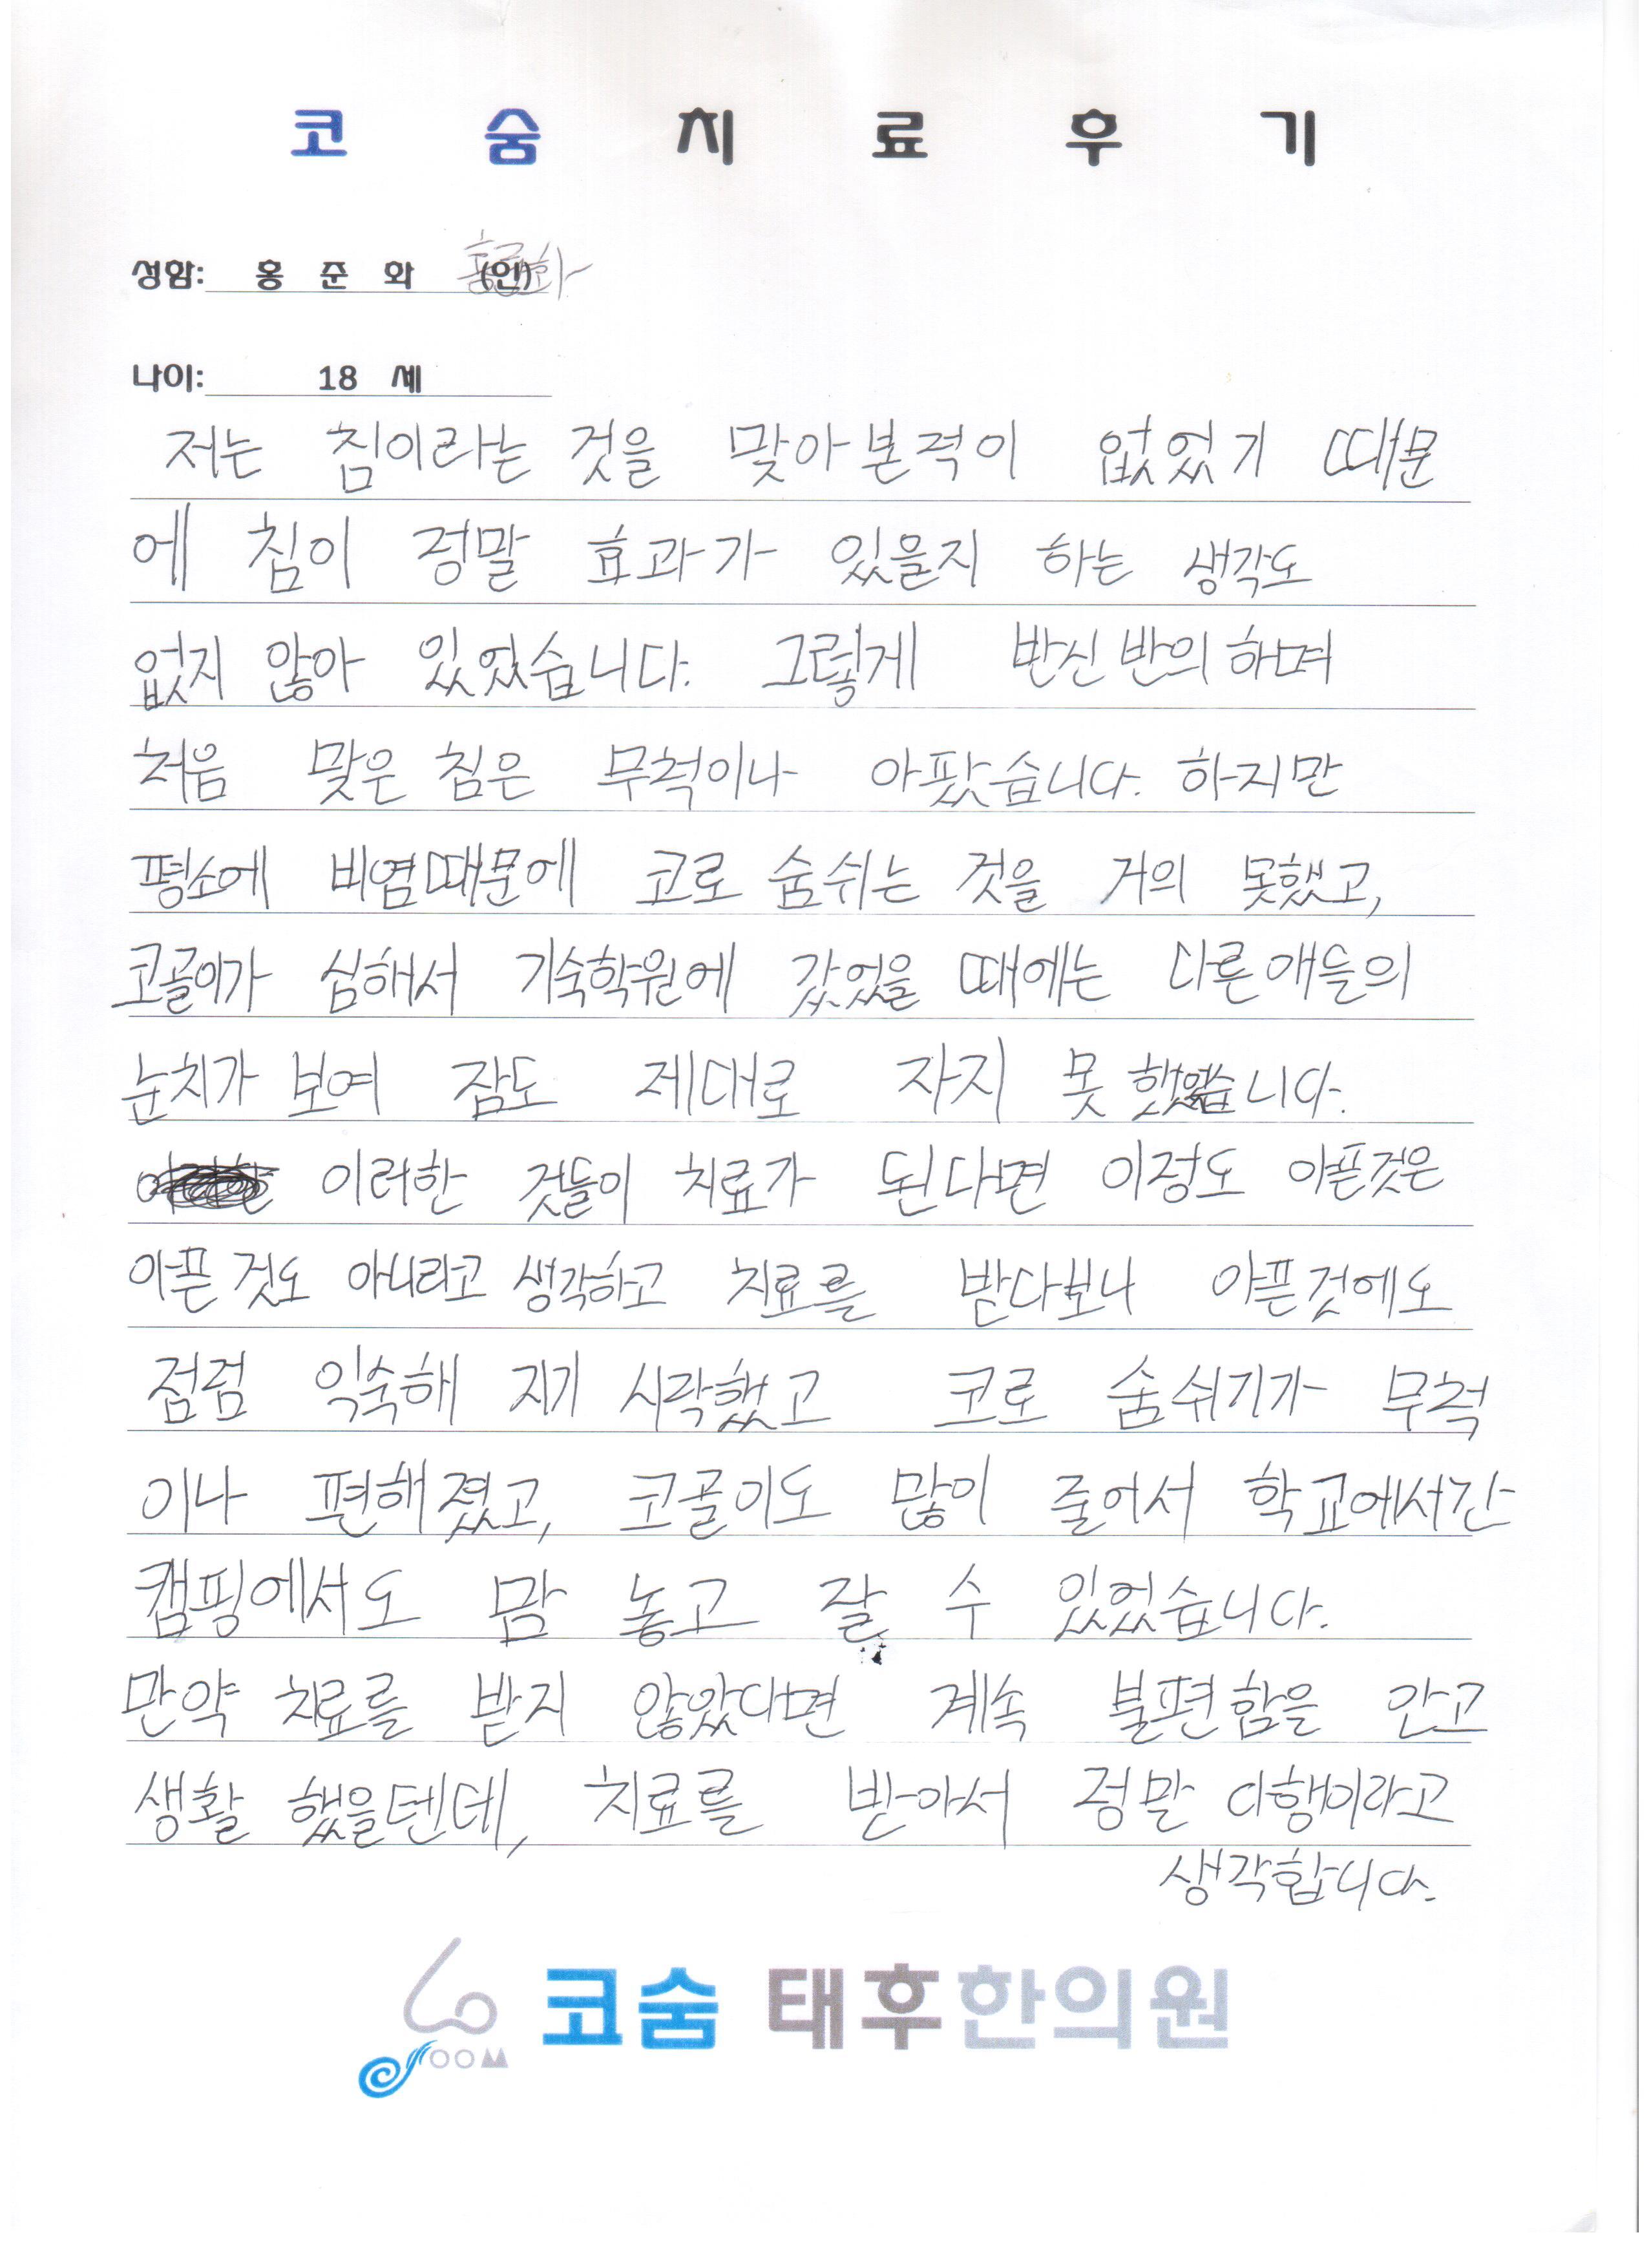 코 숨 치 료 후 기
성함: 홍 준 화 (인) 홍준화
나이: 18 세
저는 침이라는 것을 맞아본적이 없었기 때문
에 침이 정말 효과가 있을지 하는 생각도
없지 않아 있었습니다. 그렇게 반신반의하며
처음 맞은 침은 무척이나 아팠습니다. 하지만
평소에 비염때문에 코로 숨쉬는 것을 거의 못했고,
코골이가 심해서 기숙학원에 갔었을 때에는 다른애들의
눈치가 보여 잠도 제대로 자지 못 했었습니다.
이러한 것들이 치료가 된다면 이정도 아픈것은
아픈 것도 아니라고 생각하고 치료를 받다보니 아픈것에도
점점 익숙해 지기 시작했고 코로 숨쉬기가 무척
이나 편해졌고, 코골이도 많이 줄어서 학교에서간
캠핑에서도 맘 놓고 잘 수 있었습니다.
만약 치료를 받지 않았다면 계속 불편함을 안고
생활 했을텐데, 치료를 받아서 정말 다행이라고
생각합니다.
SOOM 코숨 태후한의원